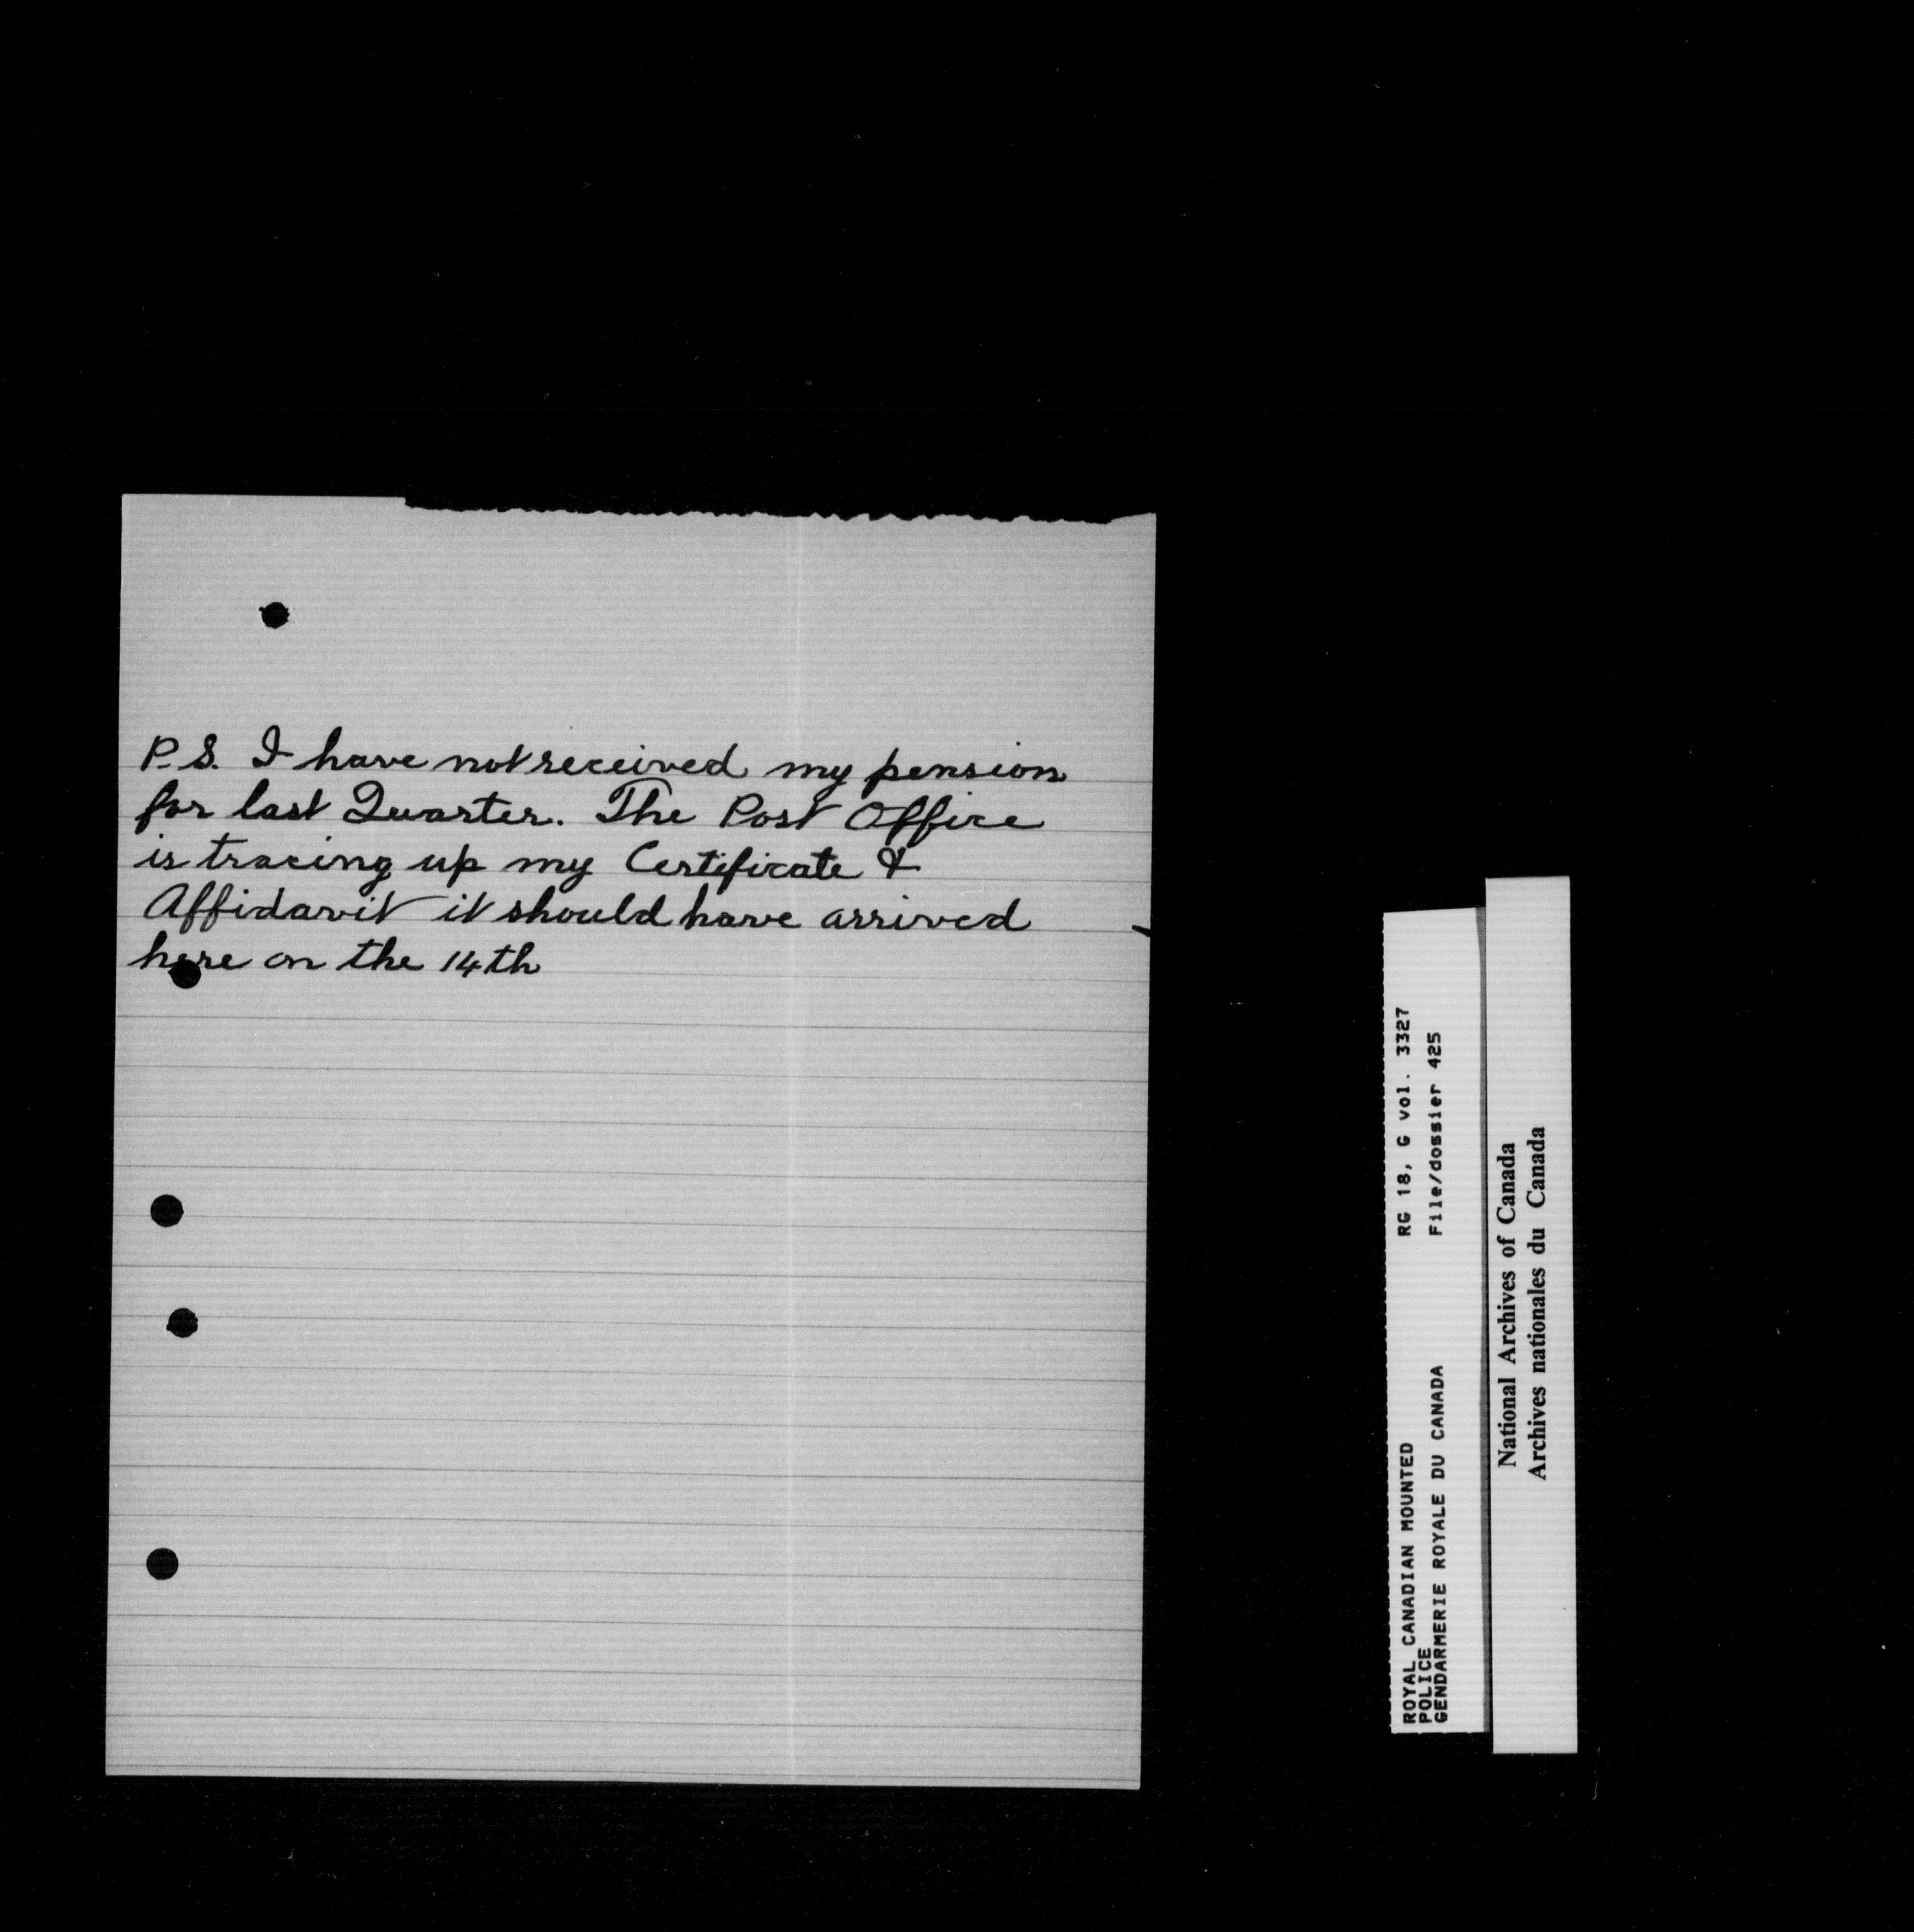 P.S. I have not received my pension
for last Quarter. The Post Office
is tracing up my Certificate &
Affidavit it should have arrived
here on the 14th
ROYAL CANADIAN MOUNTED
POLICE
GENDARMERIE ROYALE DU CANADA
RG 18, G vol. 3327
File/dossier 425
National Archives of Canada
Archives nationales du Canada